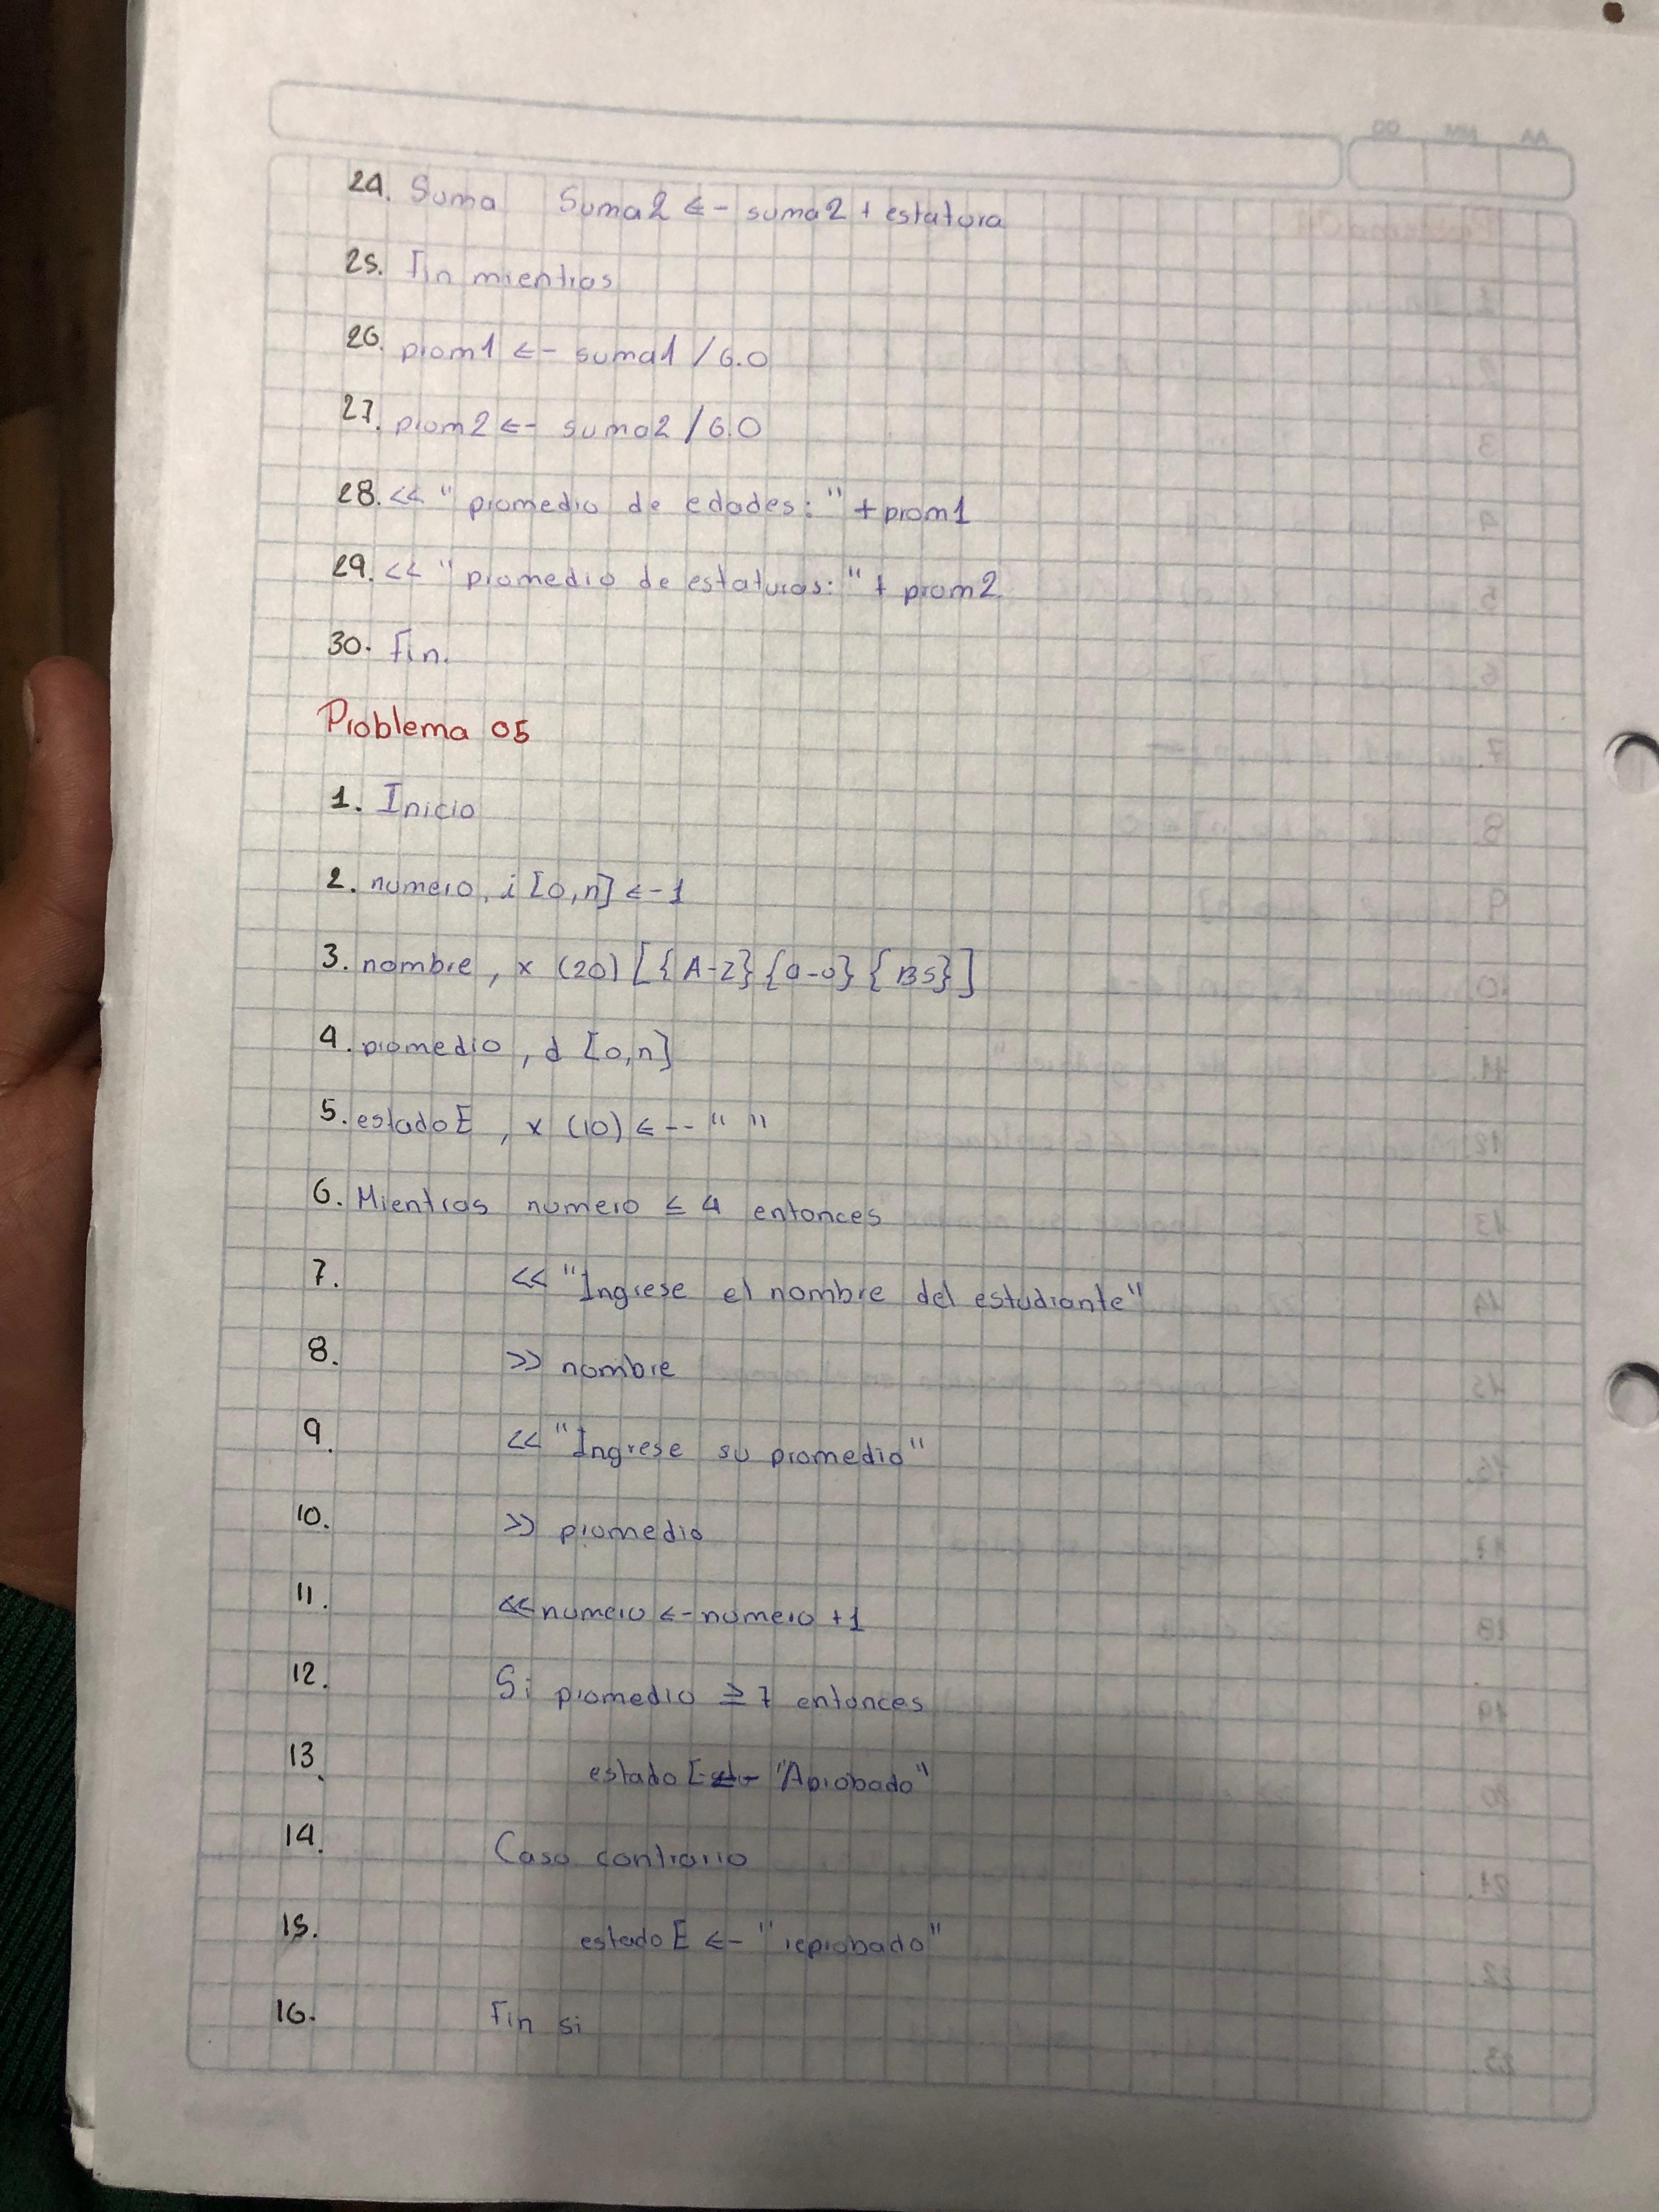 AA MM DD
24. Suma Suma2 <- suma2 + estatura
25. Fin mientras
26. prom1 <- suma1 / 6.0
27. prom2 <- suma2 / 6.0
28. << "promedio de edades: " + prom1
29. << "promedio de estaturas: " + prom2
30. Fin.
Problema 05
1. Inicio
2. numero, i [0,n] <- 1
3. nombre, x (20) [{A-Z}{a-o}{BS}]
4. promedio, d [0,n]
5. estadoE, x (10) <-- " "
6. Mientras numero ≤ 4 entonces
7. << "Ingrese el nombre del estudiante"
8. >> nombre
9. << "Ingrese su promedio"
10. >> promedio
11. << numero <- numero +1
12. Si promedio ≥ 7 entonces
13. estadoE <- "Aprobado"
14. Caso contrario
15. estadoE <- "reprobado"
16. Fin si